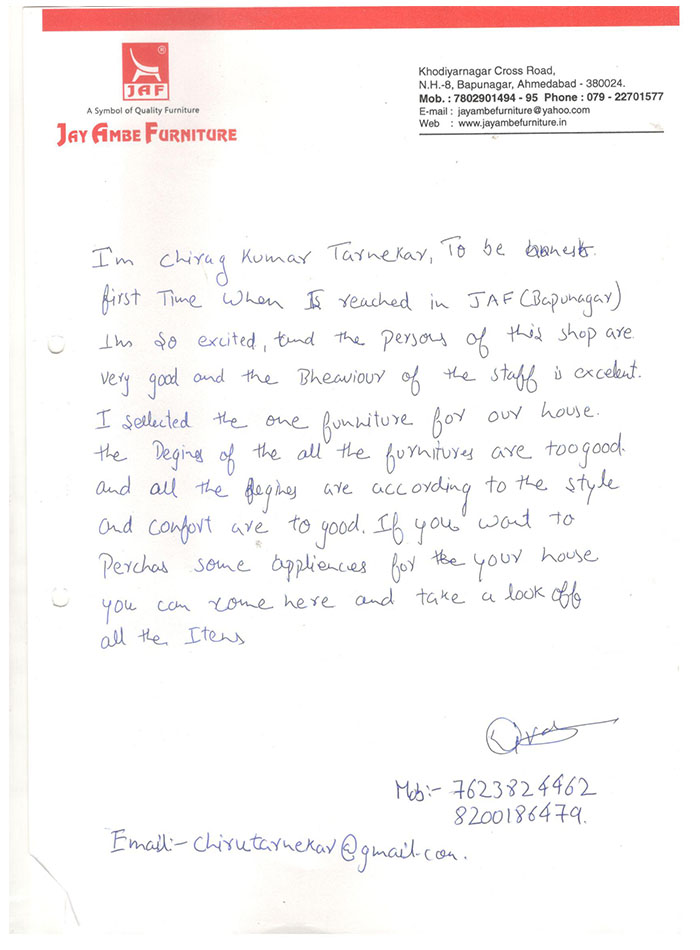 ®
JAF
A Symbol of Quality Furniture
JAY AMBE FURNITURE
Khodiyarnagar Cross Road,
N.H.-8, Bapunagar, Ahmedabad - 380024.
Mob. : 7802901494 - 95 Phone : 079 - 22701577
E-mail : jayambefurniture@yahoo.com
Web : www.jayambefurniture.in
I'm Chirag Kumar Tarnekar, To be honest.
first Time when I reached in JAF (Bapunagar)
I'm so excited, and the persons of this shop are
very good and the Bheaviour of the staff is excelent.
I sellected the one funniture for our house.
the Degines of the all the furnitures are too good.
and all the degines are according to the style
and confort are to good. If you want to
Perchas some appliences for the your house
you can come here and take a look off
all the Items
Mob:- 7623824462
8200186479.
Email:- chirutarnekar@gmail.com.